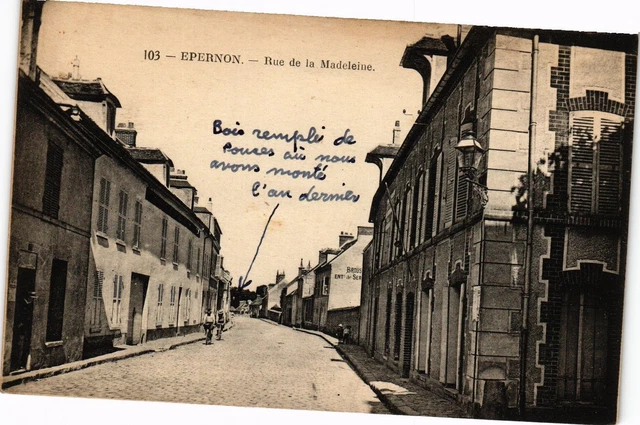 103 — EPERNON. — Rue de la Madeleine.
Bois remplé de
Pouces aù nous
avons monté
l'an dernier